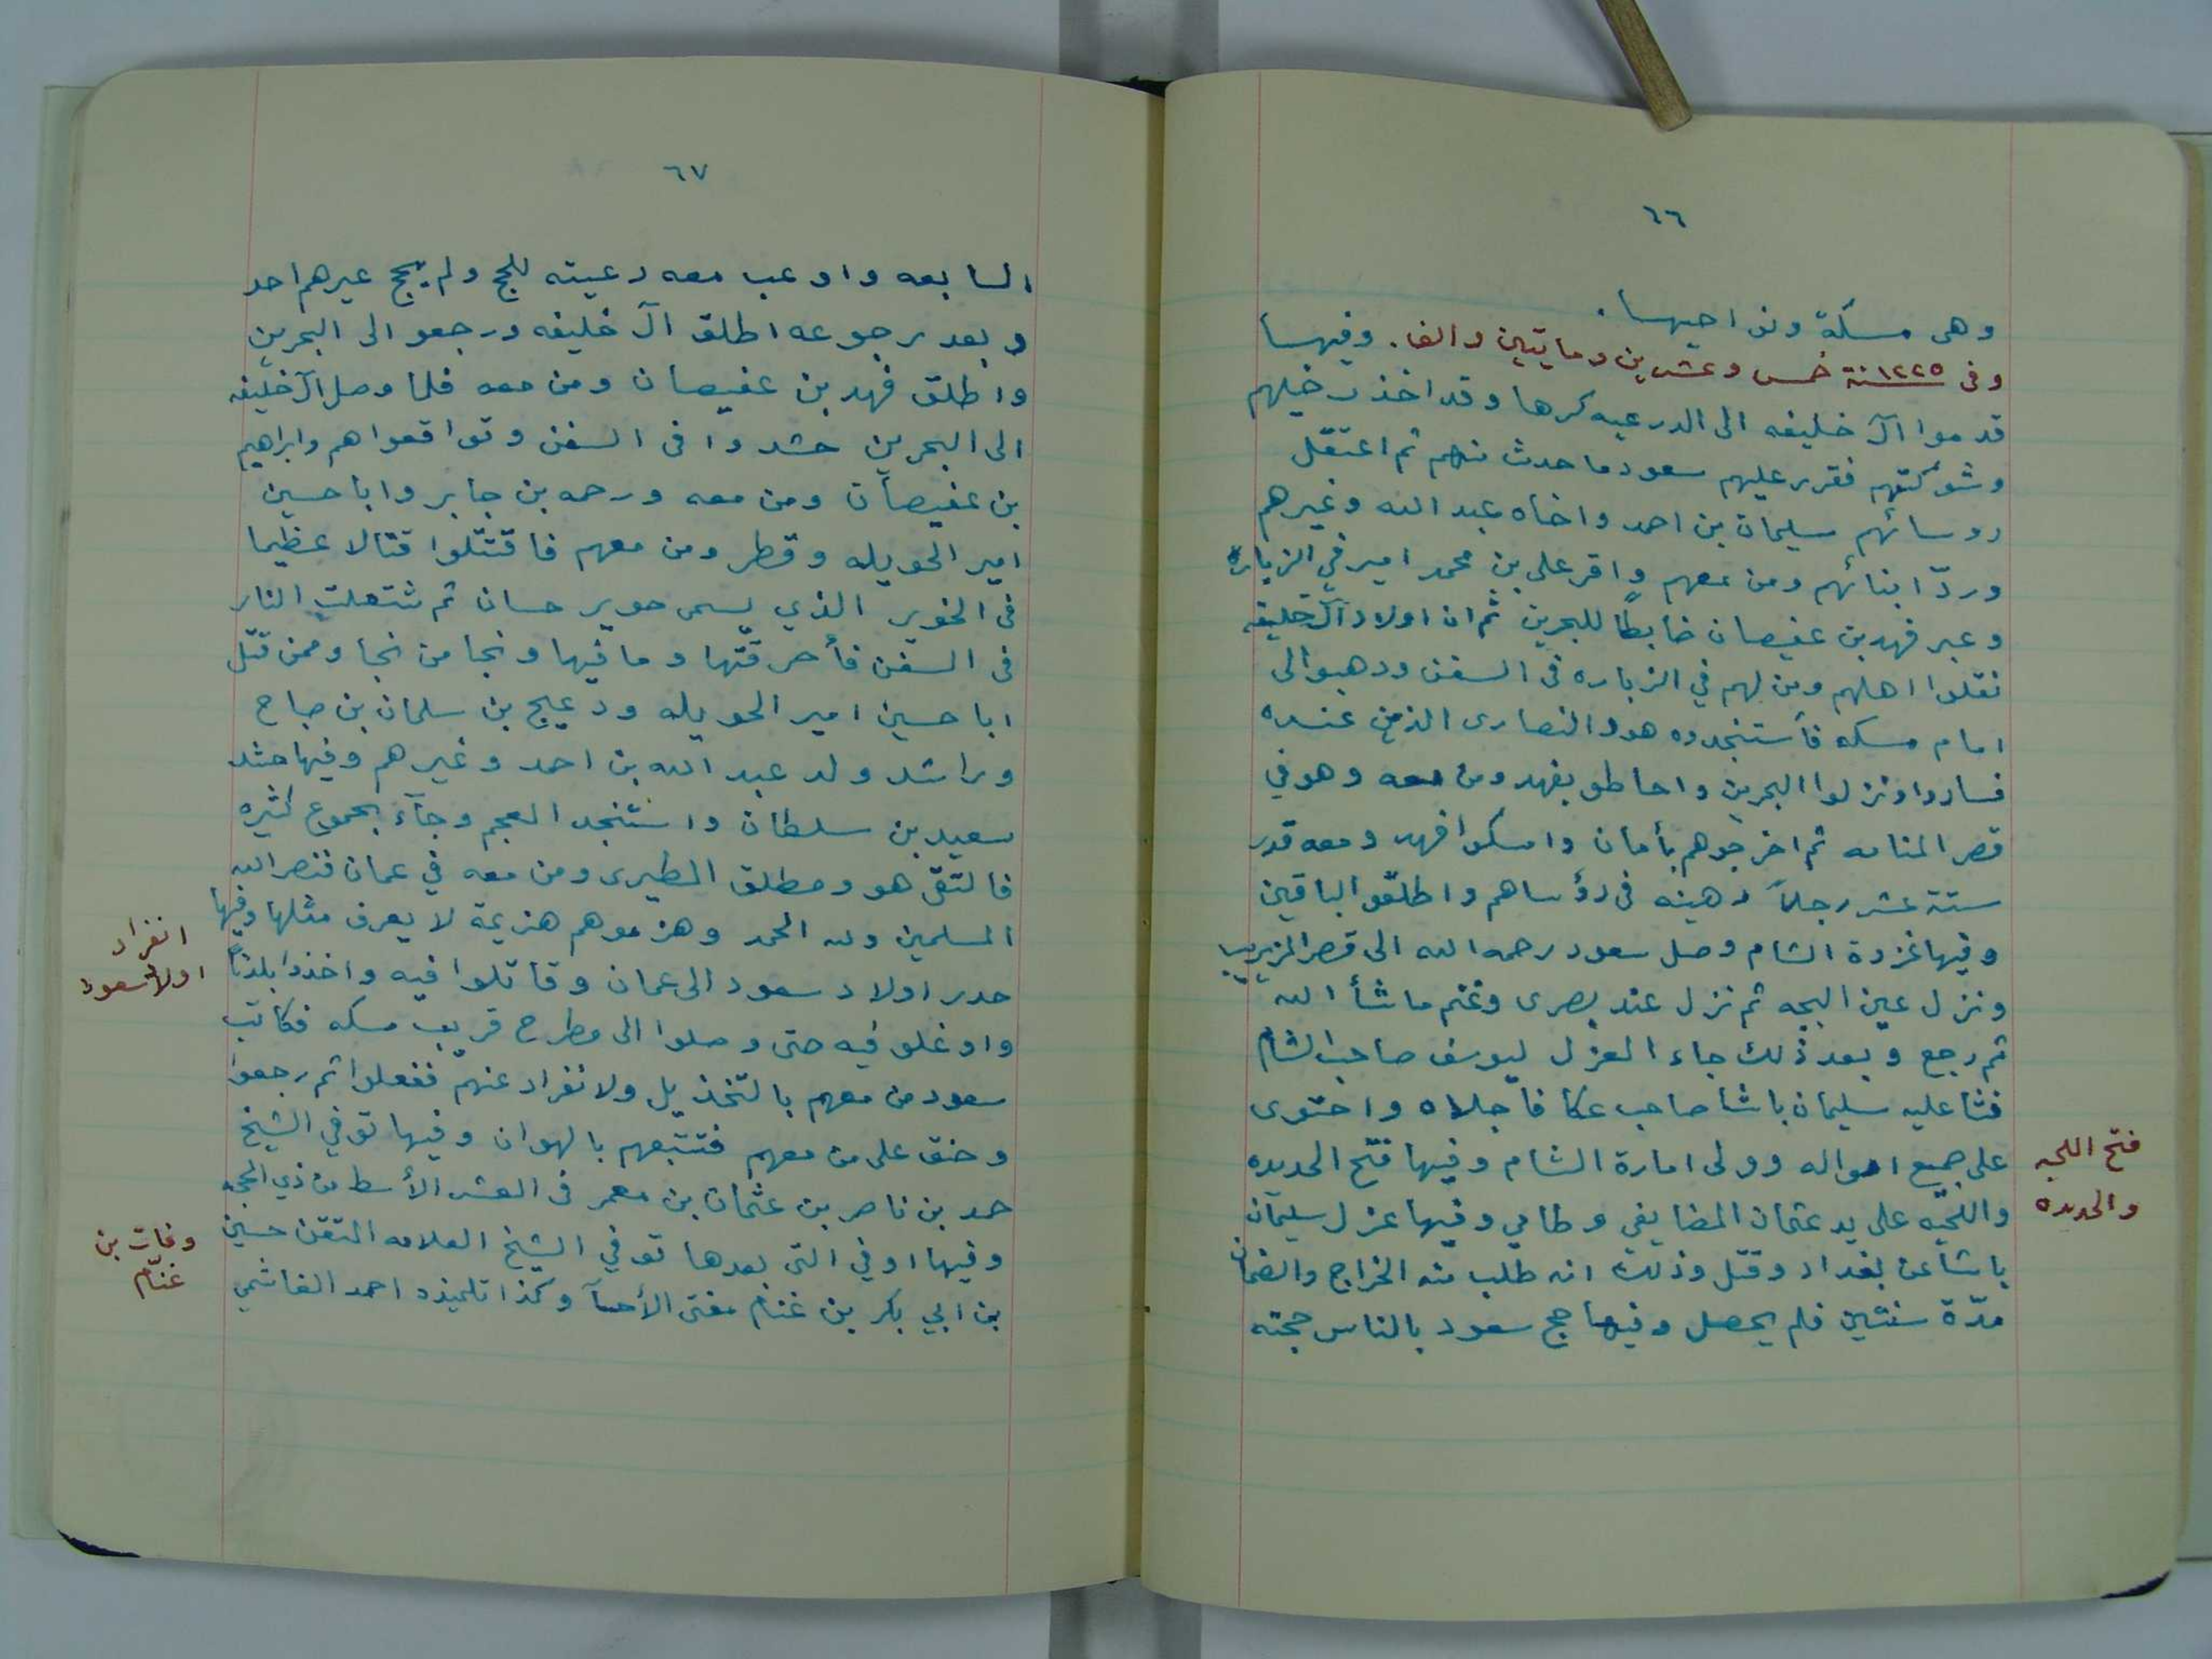 ٦٦
وهى مسكة ونواحيها.
وفى ١٢٢٥سنة خمس وعشرين ومايتين والف. وفيها
قدموا آل خليفه الى الدرعيه كرها وقد اخذت خيلهم
وشوكتهم فقرر عليهم سعود ما حدث منهم ثم اعتقل
روسائهم سليمان بن احمد واخاه عبد الله وغيرهم
وردّ ابنائهم ومن معهم واقر على بن محمد امير في الزباره
وعبر فهد بن عفيصان ضابطًا للبحرين ثم ان اولاد آل خليفه
نقلوا اهلهم ومن لهم في الزباره فى السفن وذهبوا الى
امام مسكه فأستنجدوه هو والنصارى الذين عنده
فساروا ونزلوا البحرين واحاطو بفهد ومن معه وهو في
قصر المنامه ثم اخرجوهم بأمان وامسكوا فهد ومعه قدر
ستة عشر رجلاً رهينه فى رؤساهم واطلقوا الباقين
وفيها غزوة الشام وصل سعود رحمه الله الى قصر المزيريب
ونزل عين البجه ثم نزل عند بصرى وغنم ما شأ الله
ثم رجع وبعد ذلك جاء العزل ليوسف صاحب الشام
فثا عليه سليمان باشا صاحب عكا فاجلاه واحتوى
على جميع امواله وولى امارة الشام وفيها فتح الحديده
واللحيّه على يد عثمان المضايفي وطامي وفيها عزل سليمان
باشا عن بغداد وقتل وذلك انه طلب منه الخراج والضمان
مدّة سنتين فلم يحصل وفيها حج سعود بالناس حجته
فتح اللحيه
والحديده
٦٧
السابعه واوعب معه رعيته للحج ولم يحج غيرهم احد
وبعد رجوعه اطلق آل خليفه ورجعو الى البحرين
واطلق فهد بن عفيصان ومن معه فلما وصل آل خليفه
الى البحرين حشدوا فى السفن وتواقعوا هم وابراهيم
بن عفيصان ومن معه ورحمه بن جابر وابا حسين
امير الحويله وقطر ومن معهم فاقتتلوا قتالا عظيما
فى الخوير الذي يسمى حوير حسان ثم شتعلت النار
فى السفن فأحرقتها وما فيها ونجا من نجا وممن قتل
ابا حسين امير الحويله ودعيج بن سلمان بن صباح
وراشد ولد عبد الله بن احمد وغيرهم وفيها حشد
سعيد بن سلطان واستنجد العجم وجآء بجموع كثيره
فالتقى هو ومطلق المطيرى ومن معه في عمان فنصر الله
المسلمين ولله الحمد وهزموهم هزيمة لا يعرف مثلها وفيها
حدر اولاد سعود الى عمان وقاتلوا فيه واخذوا بلدنًا
واوغلو فيه حتى وصلوا الى مطرح قريب مسكه فكاتب
سعود من معهم بالتخذيل ولانفراد عنهم ففعلوا ثم رجعوا
وحنق على من معهم فتتبعهم بالهوان وفيها توفي الشيخ
حمد بن ناصر بن عثمان بن معمر فى العشر الأسط من ذي الحجه
وفيها اوفي التى بعدها توفي الشيخ العلامه المتقن حسين
بن ابي بكر بن غنام مفتى الأحسآ وكذا تلميذه احمد الفاشمي
انفراد
اولاد سعود
وفات بن
غنّام